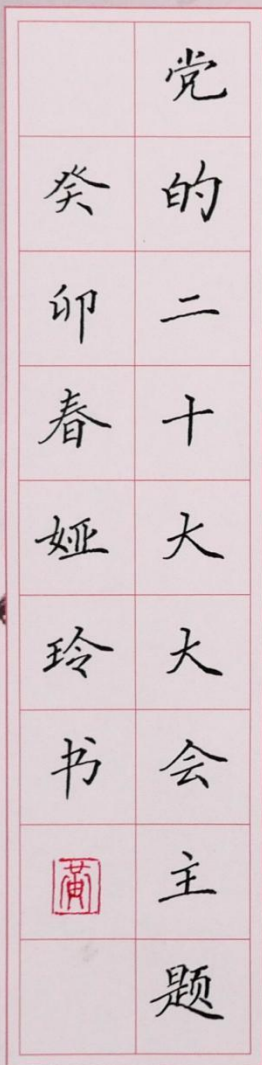 党的二十大大会主题
癸卯春娅玲书
黄